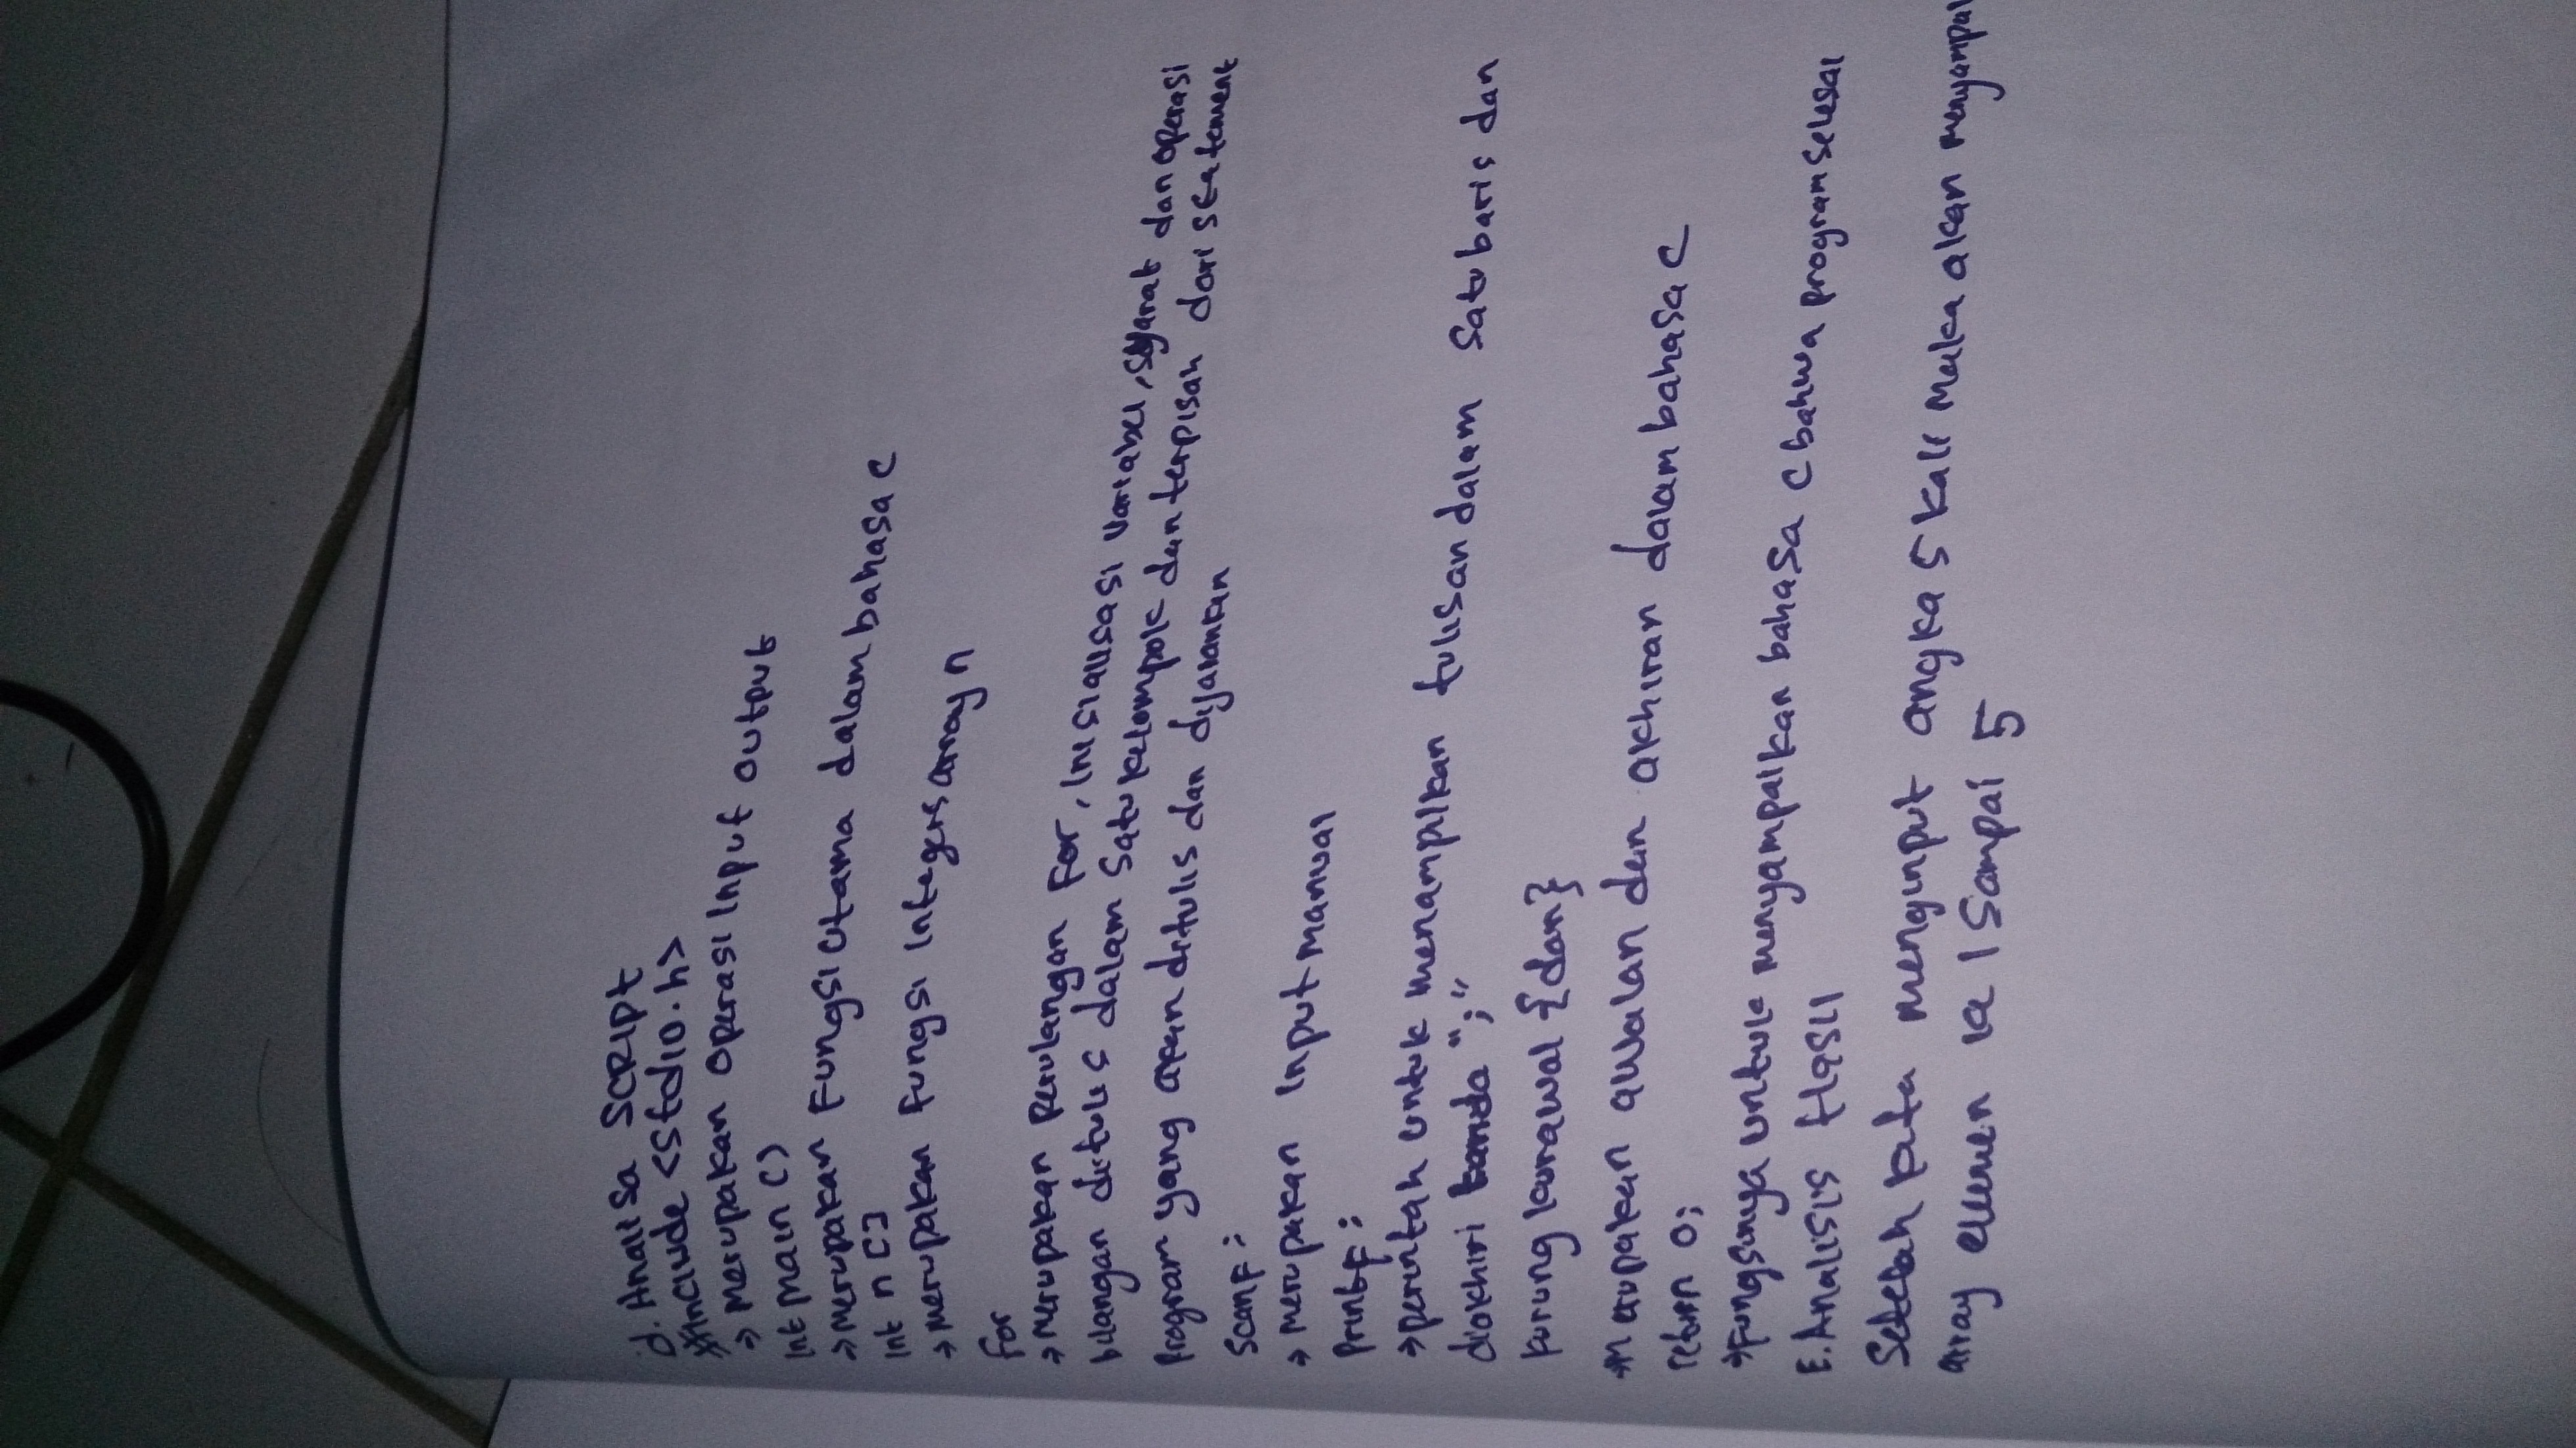 d. Analisa SCRIPT
#include <stdio.h>
→ merupakan operasi input output
int main ()
→ merupakan Fungsi utama dalam bahasa c
int n []
→ merupakan Fungsi integers array n
for
→ merupakan perulangan For, inisialisasi variabel, syarat dan operasi
bilangan ditulis dalam satu kelompok dan terpisah dari statement
program yang akan ditulis dan dijalankan
scanf :
→ merupakan input manual
printf :
→ perintah untuk menampilkan tulisan dalam satu baris dan
diakhiri tanda ";"
kurung kurawal { dan }
→ Merupakan awalan dan akhiran dalam bahasa C
return 0;
→ Fungsinya untuk menyampaikan bahasa c bahwa program selesai
E. Analisis Hasil
Setelah kita menginput angka 5 kali maka akan
array elemen ke 1 sampai 5